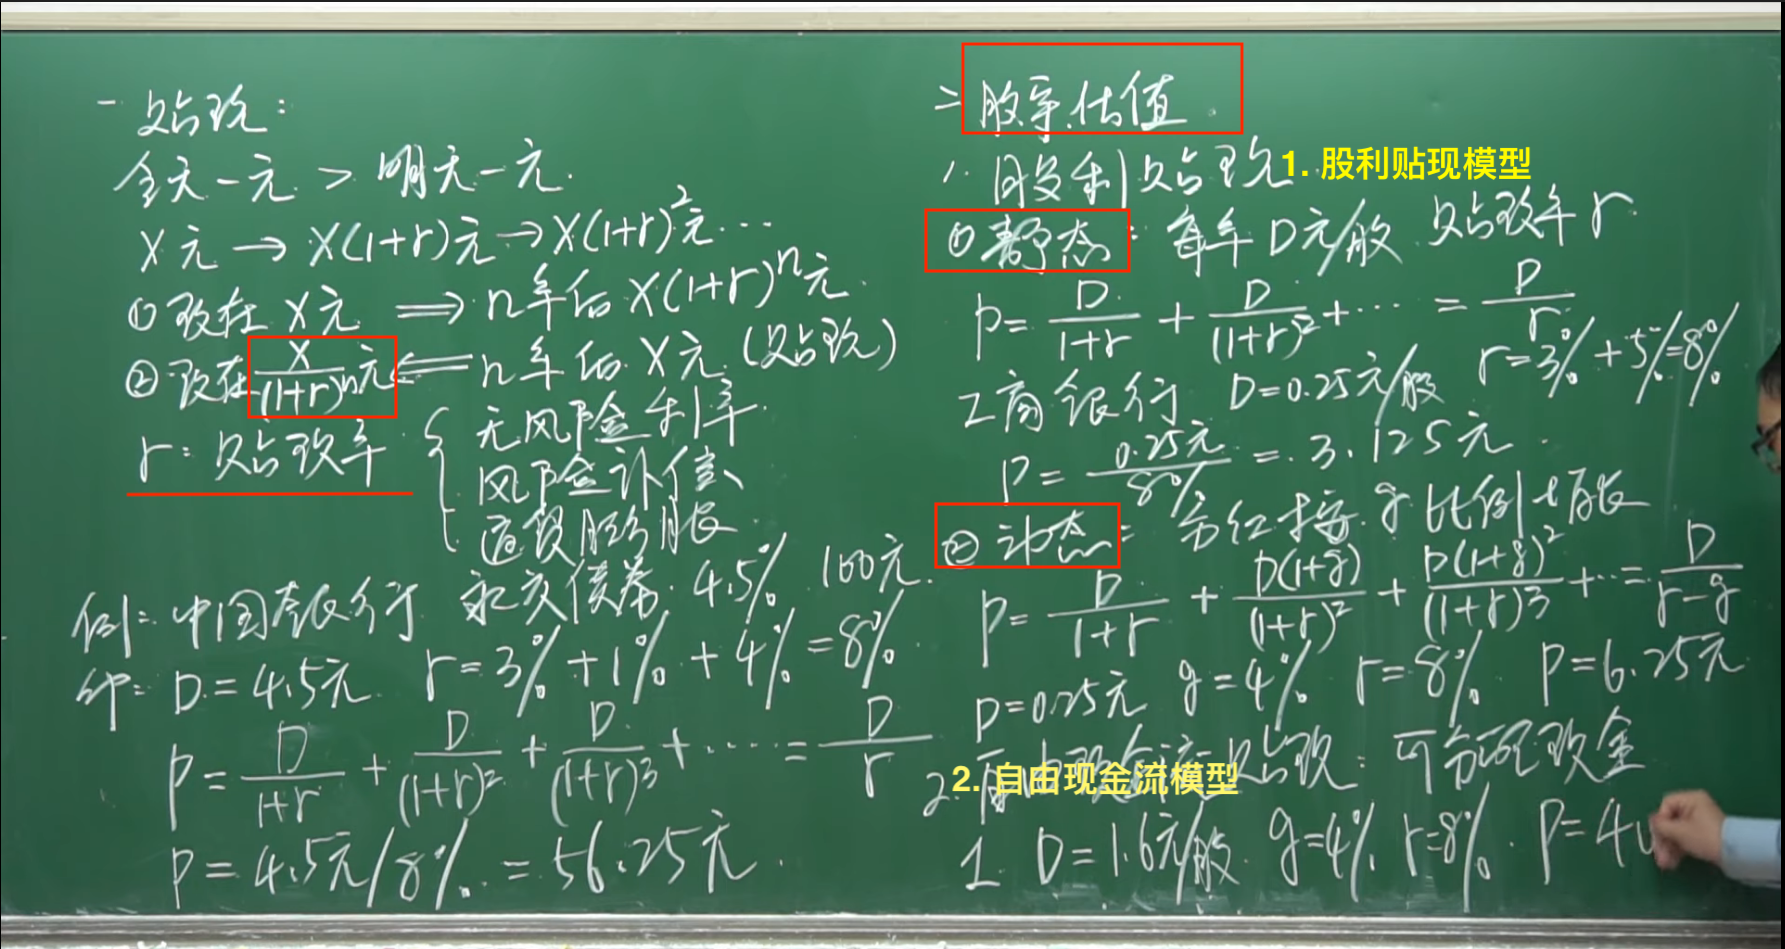 一 贴现:
今天一元 > 明天一元.
X元 → X(1+r)元 → X(1+r)²元...
① 现在 X元 ⟹ n年后 X(1+r)ⁿ元.
② 现在 X/(1+r)ⁿ元 ⟸ n年后 X元 (贴现)
r: 贴现率 { 无风险利率
风险补偿
通货膨胀
例: 中国银行 永久债券. 4.5% 100元.
即: D=4.5元 r=3%+1%+4%=8%
P = D/(1+r) + D/(1+r)² + D/(1+r)³ + ... = D/r
P = 4.5元/8% = 56.25元.
二 股票估值.
1. 股利贴现
1. 股利贴现模型
① 静态: 每年D元/股 贴现率r.
P = D/(1+r) + D/(1+r)² + ... = D/r
r=3%+5%=8%
工商银行 D=0.25元/股
P = 0.25元/8% = 3.125元
② 动态: 分红按g比例增长
P = D/(1+r) + D(1+g)/(1+r)² + D(1+g)²/(1+r)³ + ... = D/(r-g)
D=0.25元 g=4% r=8% P=6.25元
2. 自由现金流贴现: 可分配现金
2. 自由现金流模型
D=1.6元/股. g=4%. r=8%. P=40